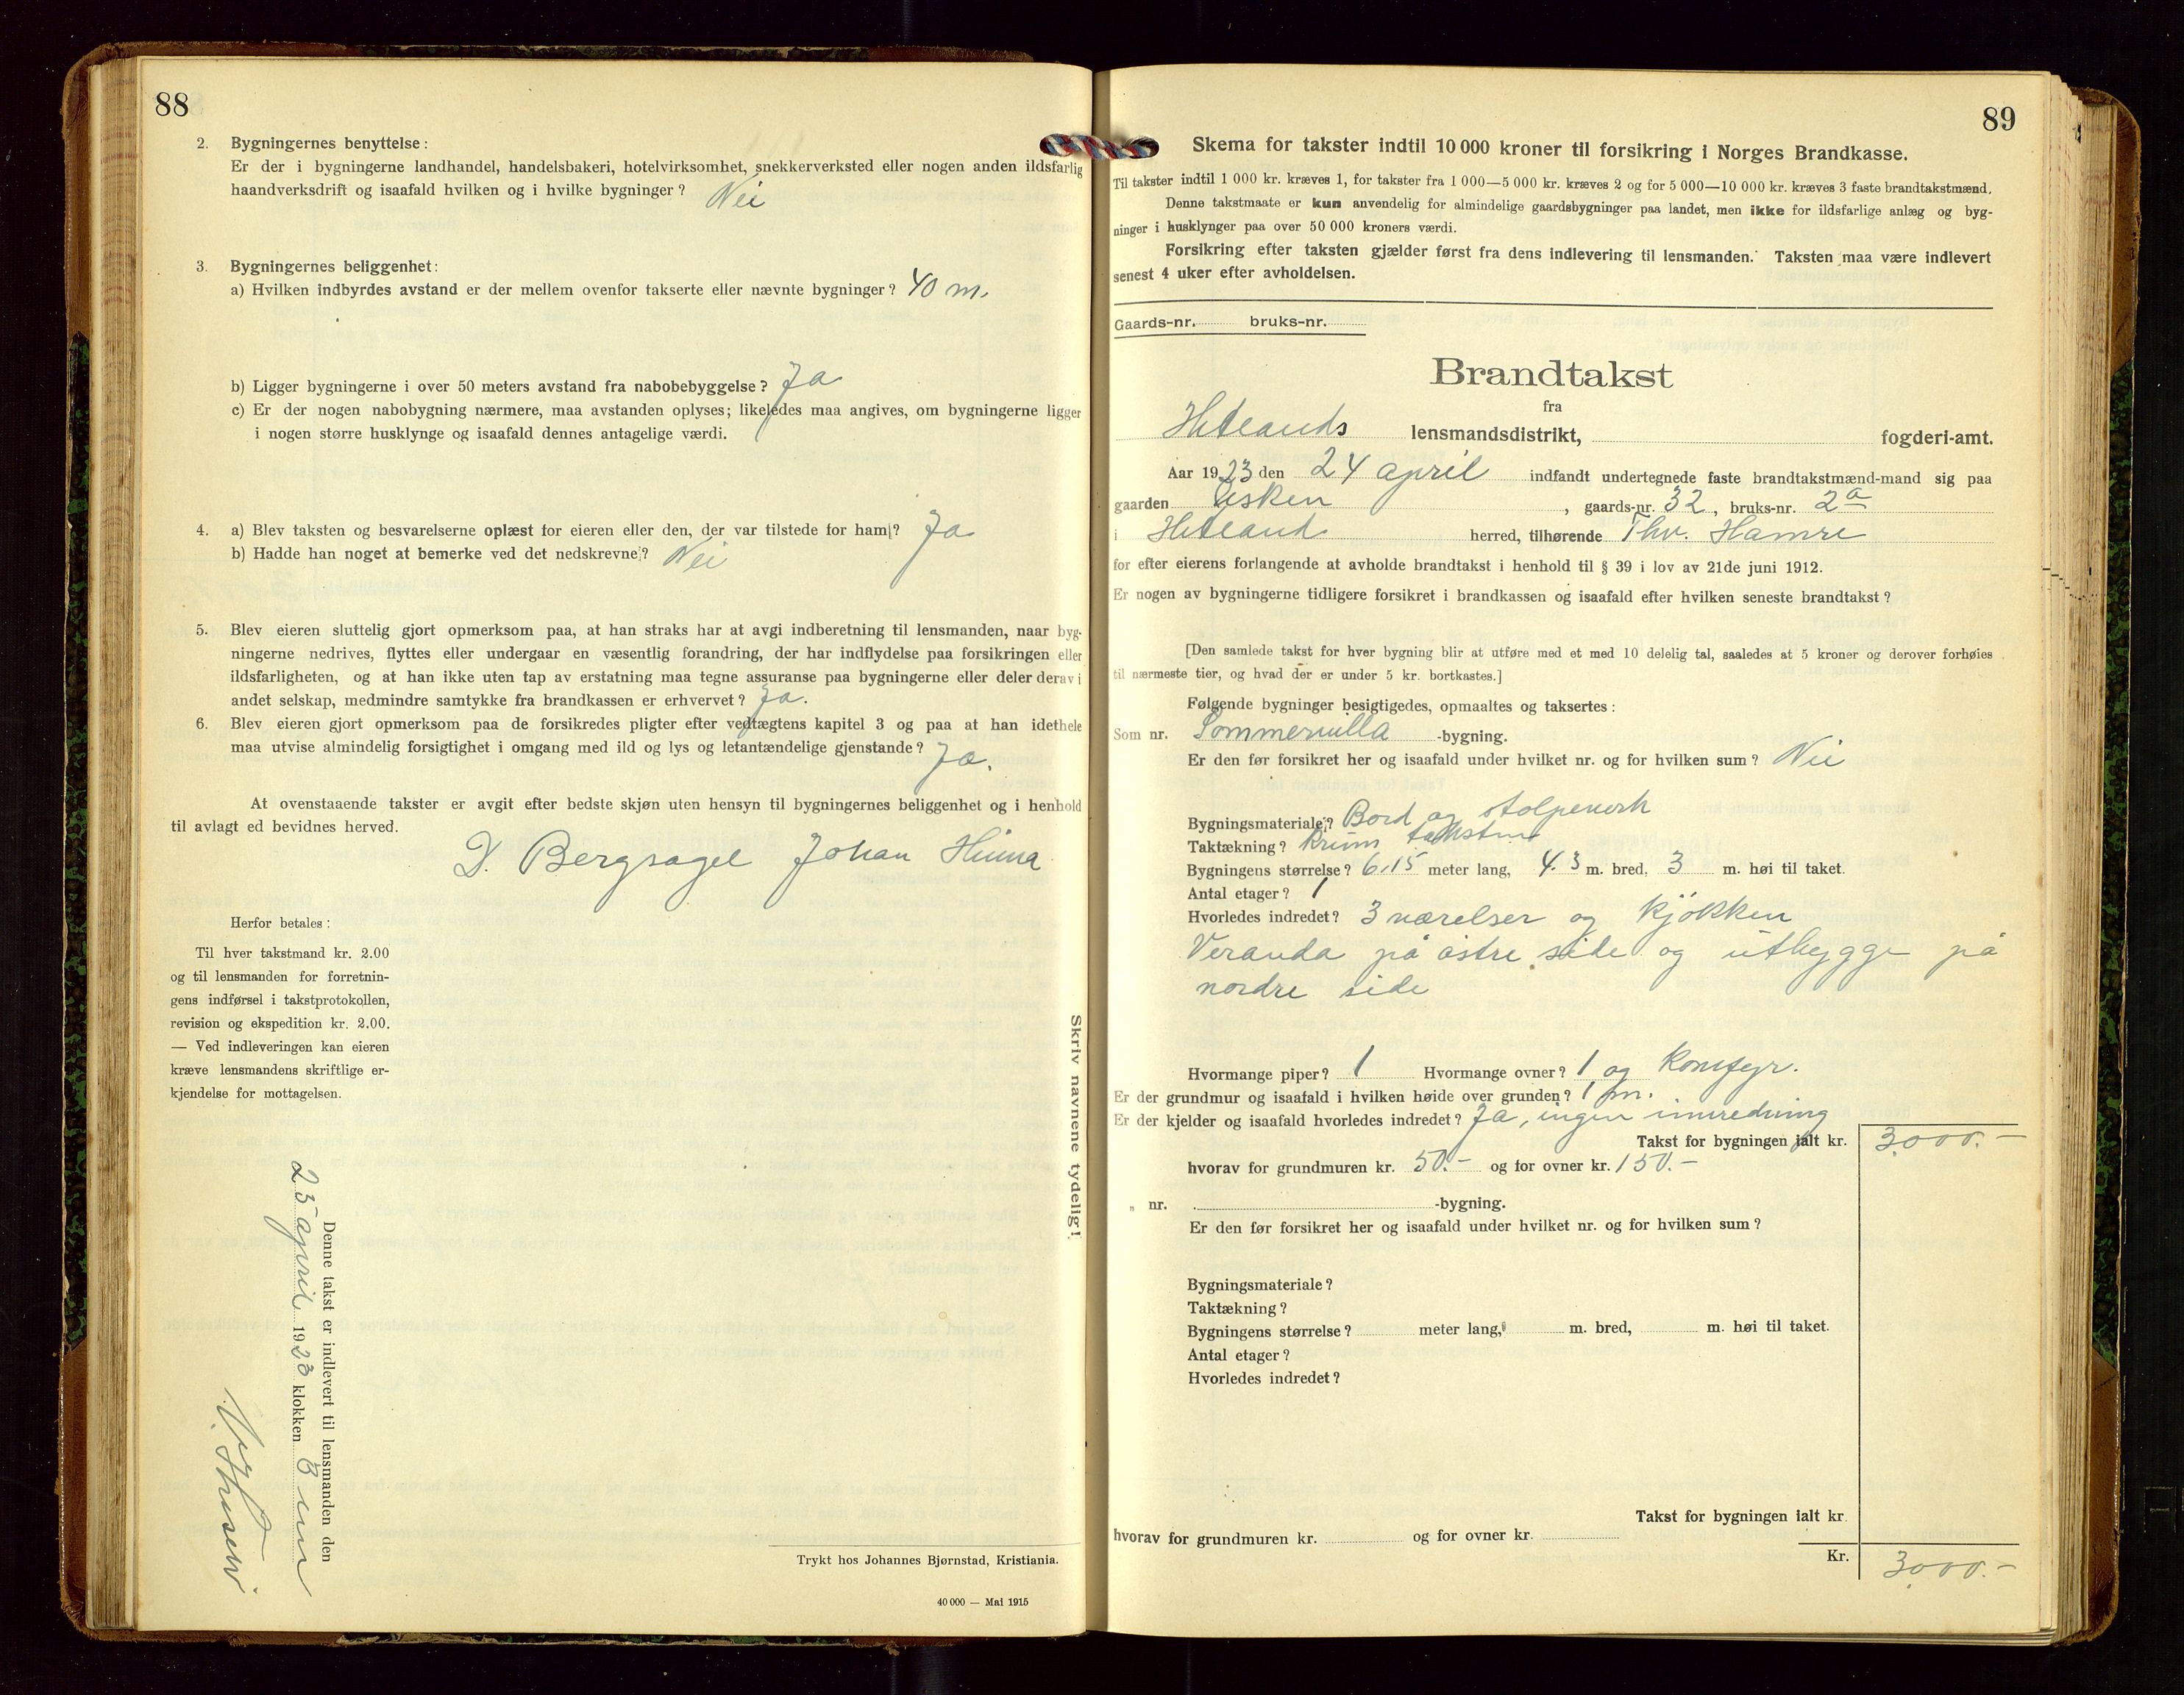 88
2. Bygningernes benyttelse:
Er der i bygningerne landhandel, handelsbakeri, hotelvirksomhet, snekkerverksted eller nogen anden ildsfarlig
haandverksdrift og isaafald hvilken og i hvilke bygninger? Nei
3. Bygningernes beliggenhet:
a) Hvilken indbyrdes avstand er der mellem ovenfor takserte eller nævnte bygninger? 40 m.
b) Ligger bygningerne i over 50 meters avstand fra nabobebyggelse? Ja
c) Er der nogen nabobygning nærmere, maa avstanden oplyses; likeledes maa angives, om bygningerne ligger
i nogen større husklynge og isaafald dennes antagelige værdi.
4. a) Blev taksten og besvarelserne oplæst for eieren eller den, der var tilstede for ham? Ja
b) Hadde han noget at bemerke ved det nedskrevne? Nei
5. Blev eieren sluttelig gjort opmerksom paa, at han straks har at avgi indberetning til lensmanden, naar byg-
ningerne nedrives, flyttes eller undergaar en væsentlig forandring, der har indflydelse paa forsikringen eller
ildsfarligheten, og at han ikke uten tap av erstatning maa tegne assuranse paa bygningerne eller deler derav i
andet selskap, medmindre samtykke fra brandkassen er erhvervet? Ja.
6. Blev eieren gjort opmerksom paa de forsikredes pligter efter vedtægtens kapitel 3 og paa at han idethele
maa utvise almindelig forsigtighet i omgang med ild og lys og letantændelige gjenstande? Ja.
At ovenstaaende takster er avgit efter bedste skjøn uten hensyn til bygningernes beliggenhet og i henhold
til avlagt ed bevidnes herved.
D. Bergsagel Johan Hinna
Herfor betales:
Til hver takstmand kr. 2.00
og til lensmanden for forretnin-
gens indførsel i takstprotokollen,
revision og ekspedition kr. 2.00.
— Ved indleveringen kan eieren
kræve lensmandens skriftlige er-
kjendelse for mottagelsen.
Denne takst er indlevert til lensmanden den
25 april 1923 klokken
Skriv navnene tydelig!
Trykt hos Johannes Bjørnstad, Kristiania.
40 000 — Mai 1915
89
Skema for takster indtil 10 000 kroner til forsikring i Norges Brandkasse.
Til takster indtil 1 000 kr. kræves 1, for takster fra 1 000—5 000 kr. kræves 2 og for 5 000—10 000 kr. kræves 3 faste brandtakstmænd.
Denne takstmaate er kun anvendelig for almindelige gaardsbygninger paa landet, men ikke for ildsfarlige anlæg og byg-
ninger i husklynger paa over 50 000 kroners værdi.
Forsikring efter taksten gjælder først fra dens indlevering til lensmanden. Taksten maa være indlevert
senest 4 uker efter avholdelsen.
Gaards-nr. bruks-nr.
Brandtakst
fra
Hetlands lensmandsdistrikt, fogderi-amt.
Aar 1923 den 24 april indfandt undertegnede faste brandtakstmænd-mand sig paa
gaarden , gaards-nr. 32, bruks-nr. 2a
i Hetland herred, tilhørende Thv. Hamre
for efter eierens forlangende at avholde brandtakst i henhold til § 39 i lov av 21de juni 1912.
Er nogen av bygningerne tidligere forsikret i brandkassen og isaafald efter hvilken seneste brandtakst?
[Den samlede takst for hver bygning blir at utføre med et med 10 delelig tal, saaledes at 5 kroner og derover forhøies
til nærmeste tier, og hvad der er under 5 kr. bortkastes.]
Følgende bygninger besigtigedes, opmaaltes og taksertes:
Som nr. Sommervilla -bygning.
Er den før forsikret her og isaafald under hvilket nr. og for hvilken sum? Nei
Bygningsmateriale? Bord og stolpeverk
Taktækning? Krum takstein
Bygningens størrelse? 6.15 meter lang, 4.3 m. bred, 3 m. høi til taket.
Antal etager? 1
Hvorledes indredet? 3 værelser og kjøkken
Veranda på østre side og utbygge på
nordre side
Hvormange piper? 1 Hvormange ovner? 1 og Komfyr.
Er der grundmur og isaafald i hvilken høide over grunden? 1 m.
Er der kjelder og isaafald hvorledes indredet? Ja, ingen innredning
Takst for bygningen ialt kr. 3000.-
hvorav for grundmuren kr. 50.- og for ovner kr. 150.-
„ nr. -bygning.
Er den før forsikret her og isaafald under hvilket nr. og for hvilken sum?
Bygningsmateriale?
Taktækning?
Bygningens størrelse? meter lang, m. bred, m. høi til taket.
Antal etager?
Hvorledes indredet?
Takst for bygningen ialt kr.
hvorav for grundmuren kr. og for ovner kr.
Kr. 3000.-